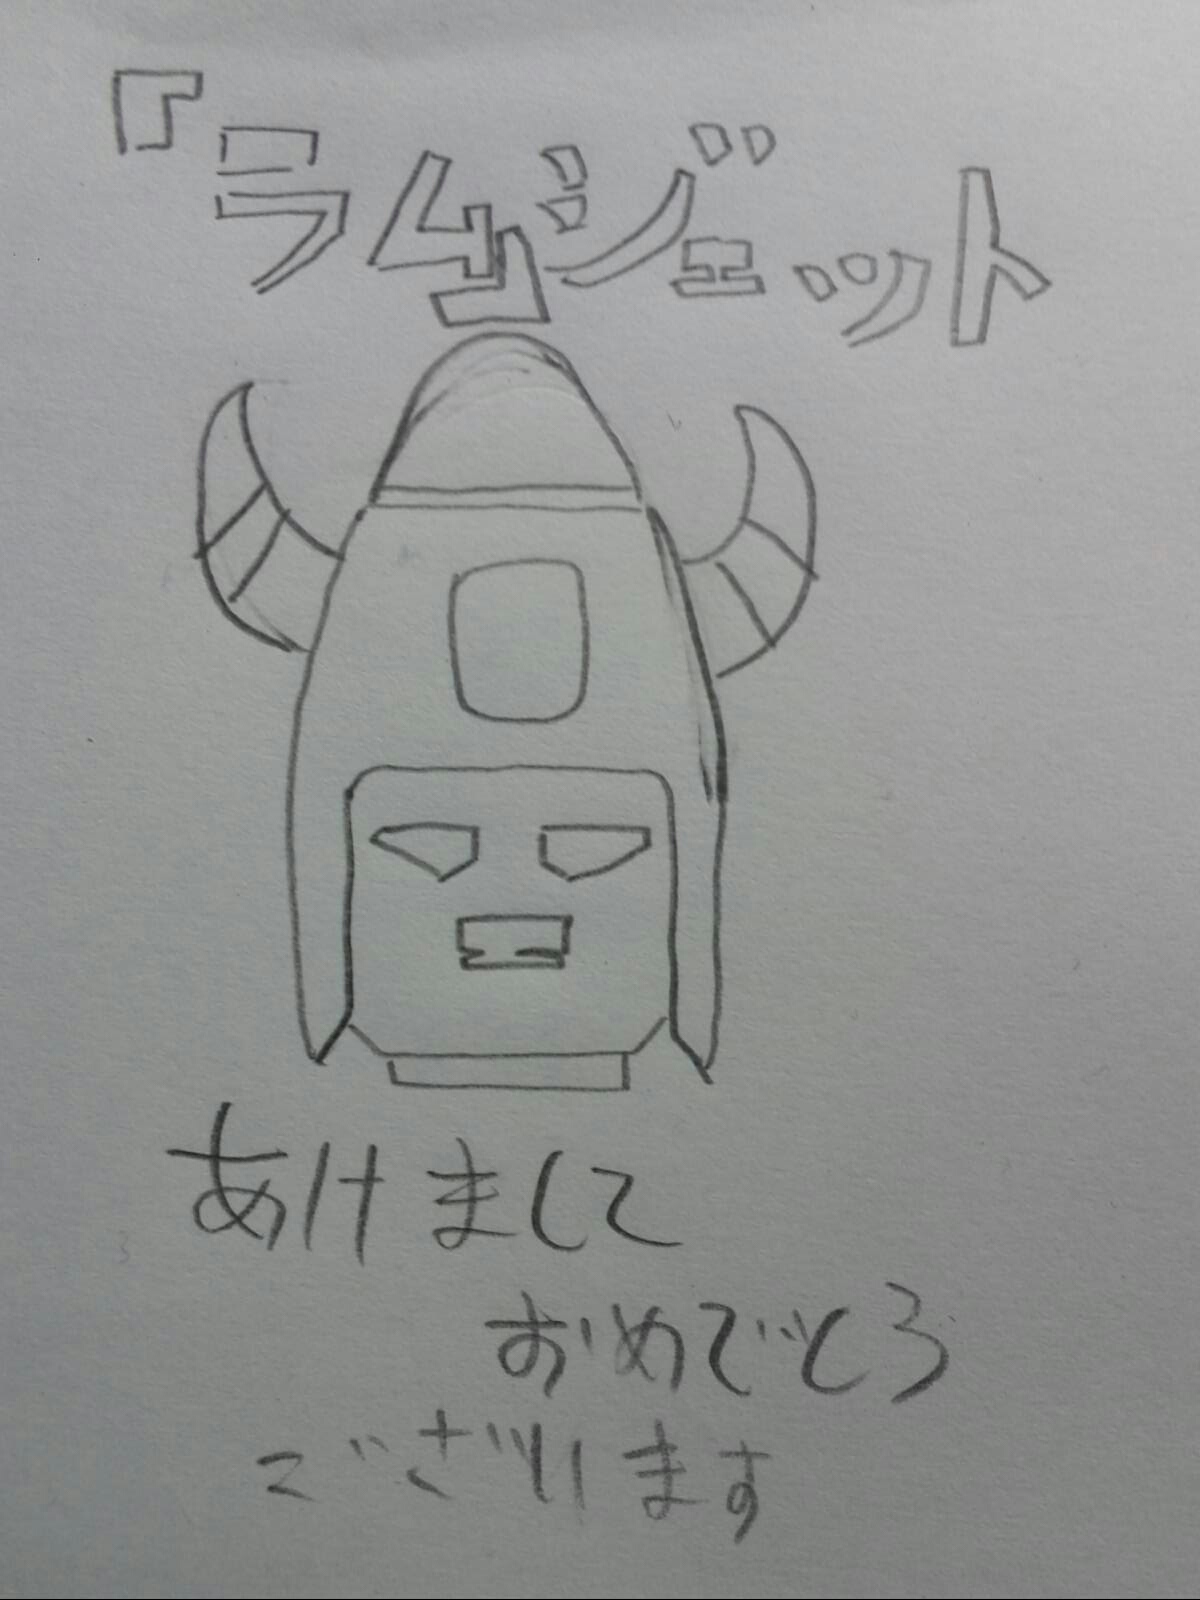 「ラムジェット
あけまして
おめでとう
ございます